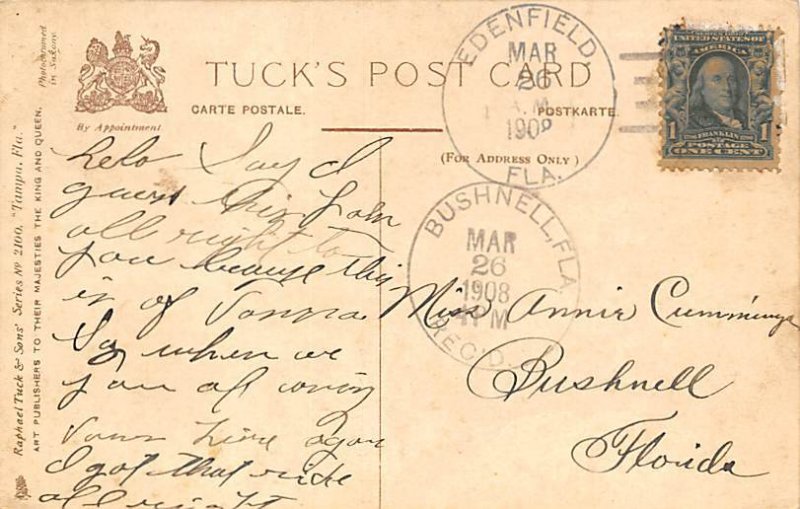 Photographed
in Saxony.
By Appointment
TUCK'S POST CARD
CARTE POSTALE.
POSTKARTE.
(FOR ADDRESS ONLY)
Raphael Tuck & Sons' Series Nº 2100, "Tampa, Fla."
ART PUBLISHERS TO THEIR MAJESTIES THE KING AND QUEEN.
EDENFIELD,
MAR
26
A.M
1908
FLA.
UNITED STATES OF
AMERICA
1 FRANKLIN 1
POSTAGE
ONE CENT
BUSHNELL, FLA
MAR
26
1908
PM
REC'D.
helo Say I
guess this
all right to
you because this
is of
Say when are
you all
I got that ride
all right
Miss Annie Cummings
Bushnell
Florida